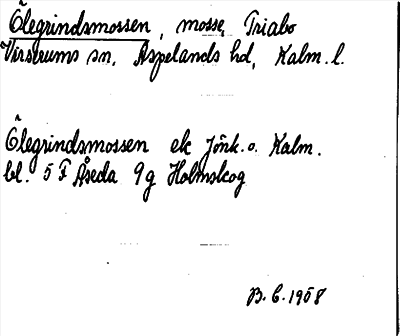 Ölegrindsmossen, mosse, Triabo
Virserums sn, Aspelands hd, Kalm. l.
Ölegrindsmossen ek Jönk. o. Kalm.
bl. 5 F Åseda 9g Holmskog
B. C. 1958